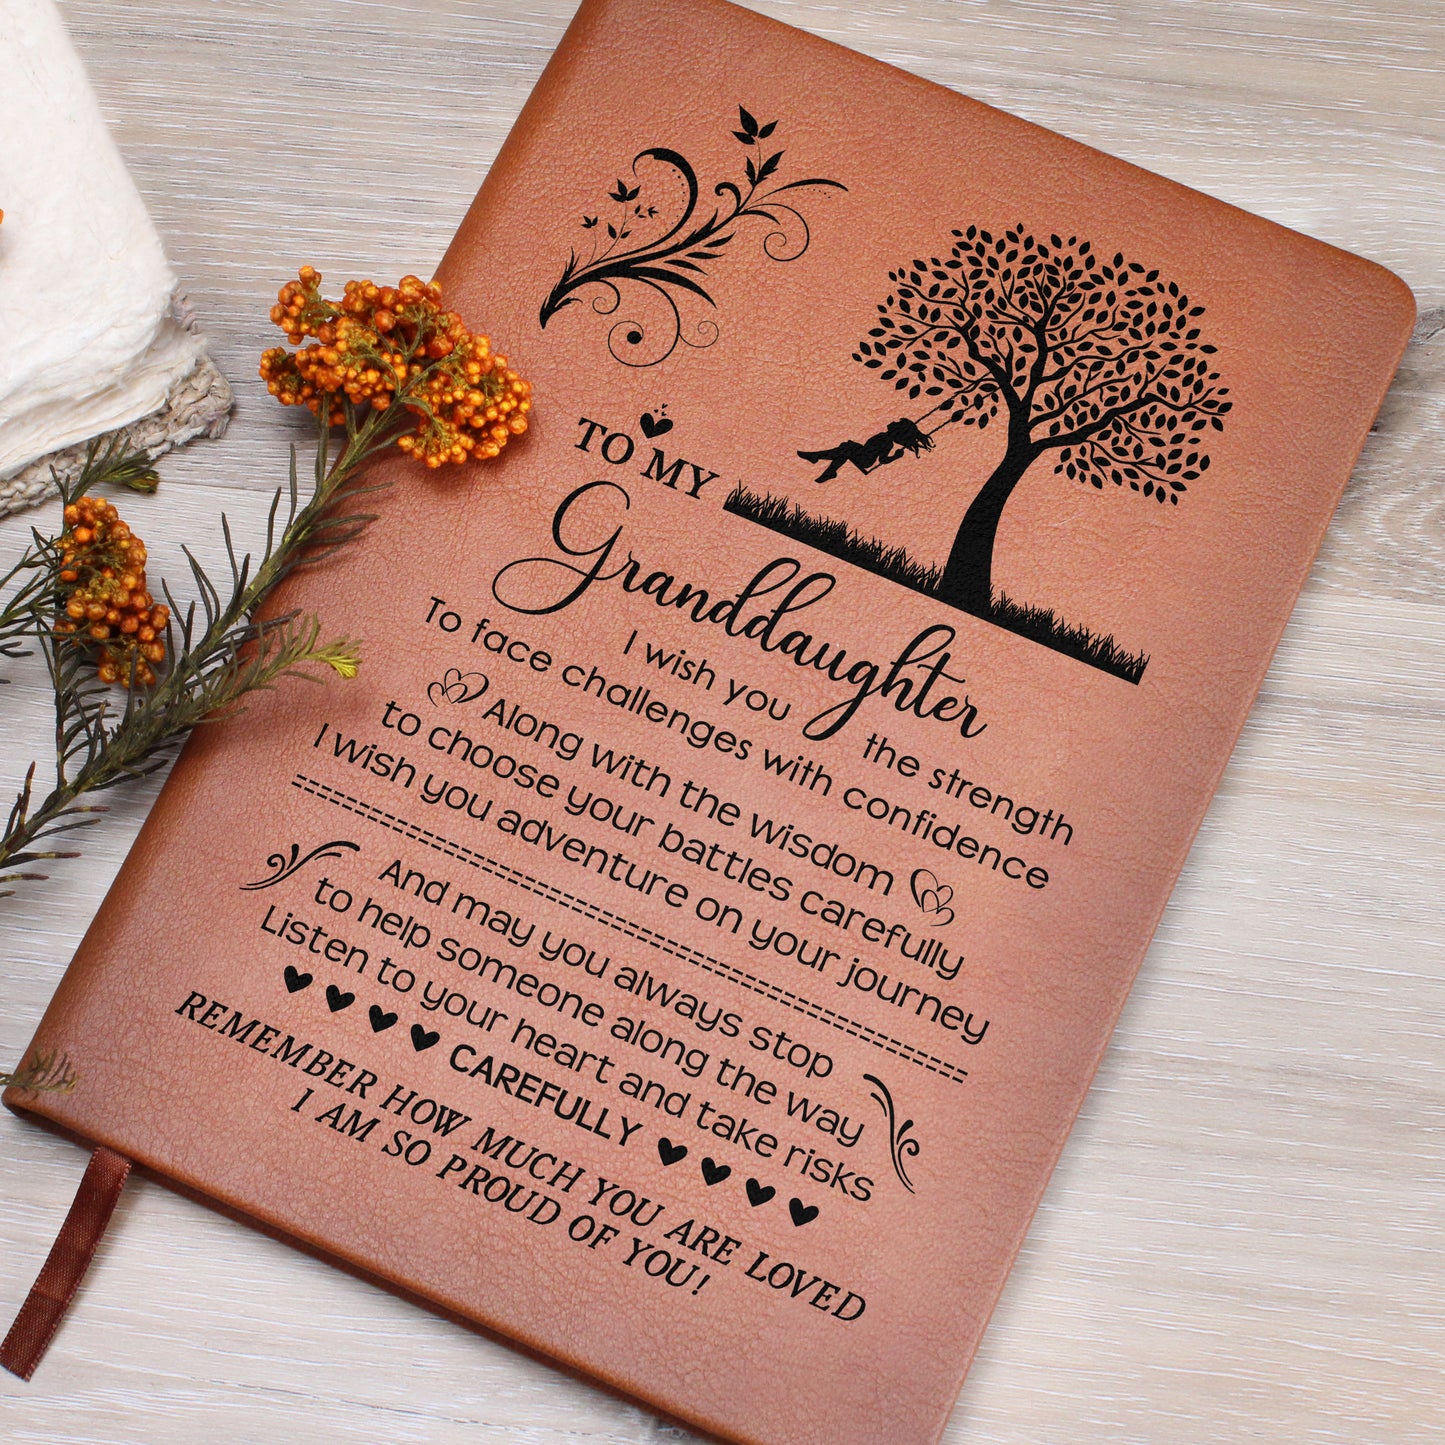 TO MY
Granddaughter
I wish you the strength
To face challenges with confidence
Along with the wisdom
to choose your battles carefully
I wish you adventure on your journey
And may you always stop
to help someone along the way
Listen to your heart and take risks
CAREFULLY
REMEMBER HOW MUCH YOU ARE LOVED
I AM SO PROUD OF YOU!